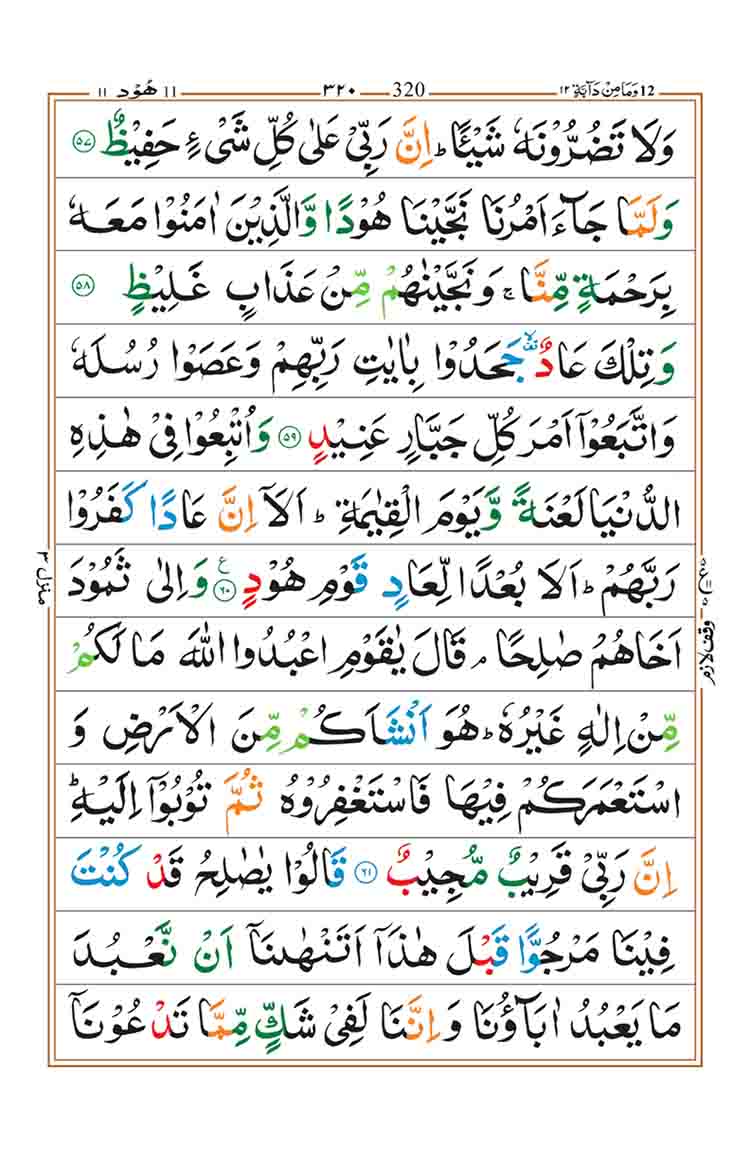 12 وَمَا مِنْ دَآبَّةٍ ١٢ 320 ٣٢٠ 11 هُوْد ١١
وَلَا تَضُرُّوْنَهٗ شَيْـًٔا ؕ اِنَّ رَبِّىْ عَلٰى كُلِّ شَىْءٍ حَفِيْظٌ ٥٧
وَلَمَّا جَآءَ اَمْرُنَا نَجَّيْنَا هُوْدًا وَّالَّذِيْنَ اٰمَنُوْا مَعَهٗ
بِرَحْمَةٍ مِّنَّا ۚ وَنَجَّيْنٰهُمْ مِّنْ عَذَابٍ غَلِيْظٍ ٥٨
وَتِلْكَ عَادٌ ۙ جَحَدُوْا بِاٰيٰتِ رَبِّهِمْ وَعَصَوْا رُسُلَهٗ
وَاتَّبَعُوْۤا اَمْرَ كُلِّ جَبَّارٍ عَنِيْدٍ ٥٩ وَاُتْبِعُوْا فِىْ هٰذِهِ
الدُّنْيَا لَعْنَةً وَّيَوْمَ الْقِيٰمَةِ ؕ اَلَاۤ اِنَّ عَادًا كَفَرُوْا
رَبَّهُمْ ؕ اَلَا بُعْدًا لِّعَادٍ قَوْمِ هُوْدٍ ٦٠ ع وَاِلٰى ثَمُوْدَ
اَخَاهُمْ صٰلِحًا ۘ قَالَ يٰقَوْمِ اعْبُدُوا اللّٰهَ مَا لَكُمْ
مِّنْ اِلٰهٍ غَيْرُهٗ ؕ هُوَ اَنْشَاَكُمْ مِّنَ الْاَرْضِ وَ
اسْتَعْمَرَكُمْ فِيْهَا فَاسْتَغْفِرُوْهُ ثُمَّ تُوْبُوْۤا اِلَيْهِ ؕ
اِنَّ رَبِّىْ قَرِيْبٌ مُّجِيْبٌ ٦١ قَالُوْا يٰصٰلِحُ قَدْ كُنْتَ
فِيْنَا مَرْجُوًّا قَبْلَ هٰذَاۤ اَتَنْهٰىنَاۤ اَنْ نَّعْبُدَ
مَا يَعْبُدُ اٰبَآؤُنَا وَاِنَّنَا لَفِىْ شَكٍّ مِّمَّا تَدْعُوْنَاۤ
منزل ٣
وقف لازم